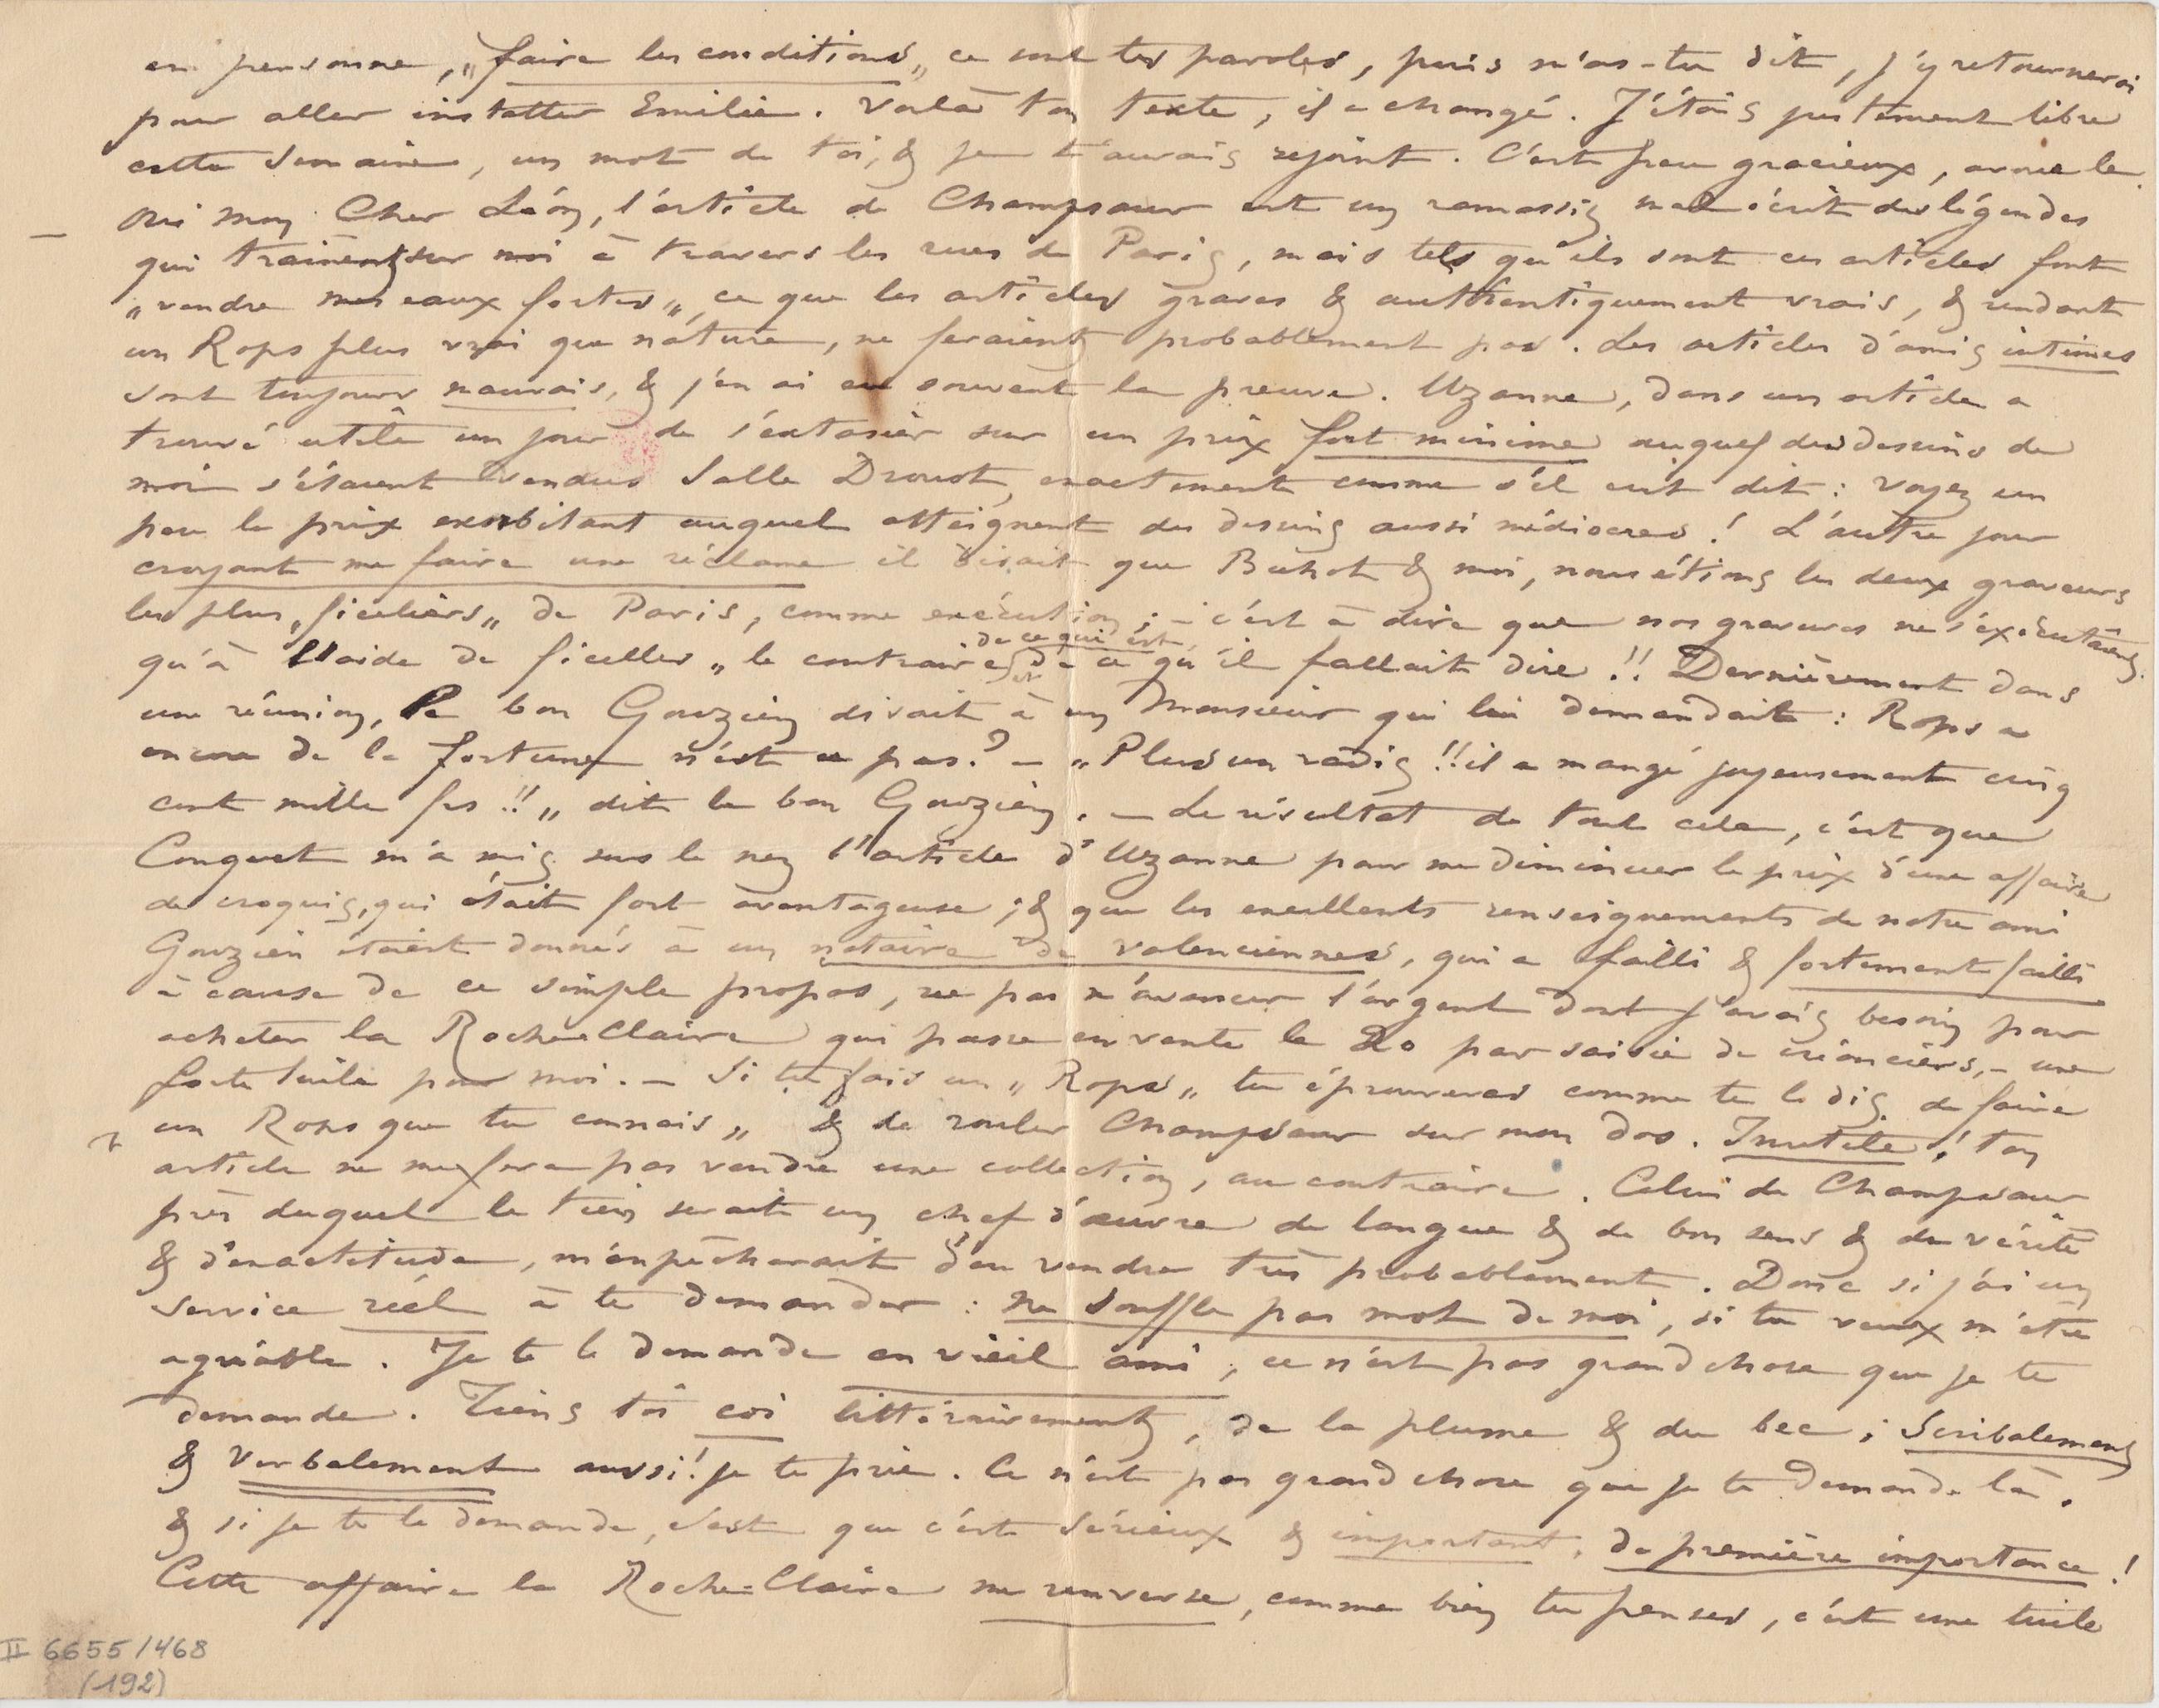 en personne, „faire les conditions„ ce sont tes paroles, puis m'as-tu dit, j'y retournerai
pour aller installer Emilie. Voilà ton texte, il a changé. J'étais justement libre
cette semaine, un mot de toi, & je t'aurais rejoint. C'est peu gracieux, avoue le.
— Oui mon Cher Léon, l'article de Champsaur est un ramassis mal écrit des légendes
qui traînent sur moi à travers les rues de Paris, mais tels qu'ils sont ces articles font
„vendre mes eaux fortes„ ce que les articles graves & authentiquement vrais, & rendant
un Rops plus vrai que nature, ne feraient probablement pas. Les articles d'amis intimes
sont toujours mauvais, & j'en ai eu souvent la preuve. Uzanne, dans un article a
trouvé utile un jour de s'extasier sur un prix fort minime auquel des dessins de
moi s'étaient vendus Salle Drouot, exactement comme s'il eut dit : Voyez un
peu le prix exorbitant auquel atteignent des dessins aussi médiocres ! L'autre jour
croyant me faire une réclame il disait que Buhot & moi, nous étions les deux graveurs
les plus „ficeliers„ de Paris, comme exécution ; - c'est à dire que nos gravures ne s'exécutaient
qu'à l'aide de ficelles „ le contraire de ce qui est, & de ce qu'il fallait dire !! Dernièrement dans
une réunion, le bon Gouzien disait à un Monsieur qui lui demandait : Rops a
encore de la fortune n'est ce pas ? — „Plus un radis !! il a mangé joyeusement cinq
cent mille frs !! „ dit le bon Gouzien. — Le résultat de tout cela, c'est que
Conquet m'a mis sous le nez l'article d'Uzanne pour me diminuer le prix d'une affaire
de croquis, qui était fort avantageuse ; & que les excellents renseignements de notre ami
Gouzien étaient donnés à un notaire de Valenciennes, qui a failli & fortement failli
à cause de ce simple propos, ne pas m'avancer l'argent dont j'avais besoin pour
acheter la Roche-Claire qui passe en vente le 20 par saisie de créanciers, - une
forte tuile pour moi. — Si tu fais un „Rops„ tu éprouveras comme te le dis, de faire
un Rops que tu connais „ & de rouler Champsaur sur mon dos. Inutile ! ton
article ne me fera pas vendre une collection, au contraire. Celui de Champsaur
près duquel le tien serait un chef d'œuvre de langue & de bon sens & de vérité
& d'exactitude, m'empêcherait d'en vendre très probablement. Donc si j'ai un
service réel à te demander : ne souffle pas mot de moi, si tu veux m'être
agréable. Je te le demande en vieil ami, ce n'est pas grand chose que je te
demande. Tiens toi coi littérairement, de la plume & du bec ; Scribalement
& verbalement aussi ! je te prie. Ce n'est pas grand chose que je te demande là,
& si je te le demande, c'est que c'est sérieux & important, de première importance !
Cette affaire la Roche-Claire me renverse, comme bien tu penses, c'est une tuile
II 6655/468
(192)